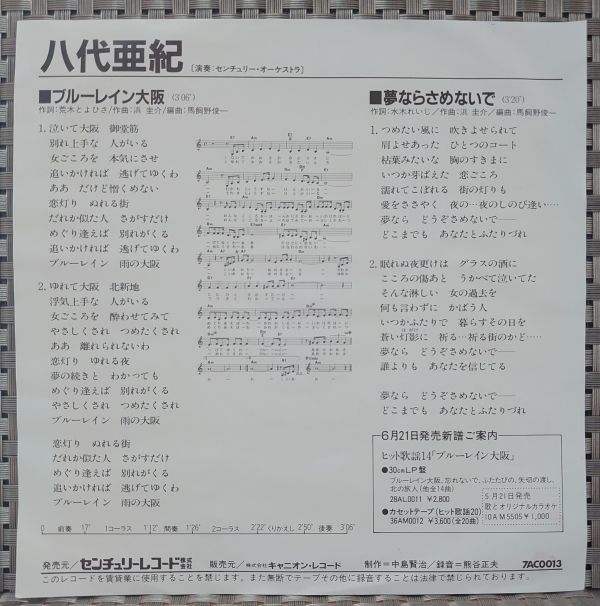 八代亜紀 〔演奏:センチュリー・オーケストラ〕
■ブルーレイン大阪 (3'06")
作詞:荒木とよひさ/作曲:浜 圭介/編曲:馬飼野俊一
1. 泣いて大阪 御堂筋
別れ上手な 人がいる
女ごころを 本気にさせ
追いかければ 逃げてゆくわ
ああ だけど憎くめない
恋灯り ぬれる街
だれか似た人 さがすだけ
めぐり逢えば 別れがくる
追いかければ 逃げてゆくわ
ブルーレイン 雨の大阪
2. ゆれて大阪 北新地
浮気上手な 人がいる
女ごころを 酔わせてみて
やさしくされ つめたくされ
ああ 離れられないわ
恋灯り ゆれる夜
夢の続きと わかっても
めぐり逢えば 別れがくる
やさしくされ つめたくされ
ブルーレイン 雨の大阪
恋灯り ぬれる街
だれか似た人 さがすだけ
めぐり逢えば 別れがくる
追いかければ 逃げてゆくわ
ブルーレイン 雨の大阪
0 前奏 17" 1コーラス 1'12" 間奏 1'26" 2コーラス 2'22" くりかえし 2'50" 後奏 3'06"
■夢ならさめないで (3'20")
作詞:水木れいじ/作曲:浜 圭介/編曲:馬飼野俊一
1. つめたい風に 吹きよせられて
肩よせあった ひとつのコート
枯葉みたいな 胸のすきまに
いつか芽ばえた 恋ごころ
濡れてこぼれる 街の灯りも
愛をささやく 夜の…夜のしのび逢い…
夢なら どうぞさめないで──
どこまでも あなたとふたりづれ
2. 眠れぬ夜更けは グラスの酒に
こころの傷あと うかべて泣いてた
そんな淋しい 女の過去を
何も言わずに かばう人
いつかふたりで 暮らすその日を
蒼い灯影に 祈る…祈る街のかど…‥
夢なら どうぞさめないで──
誰よりも あなたを信じてる
夢なら どうぞさめないで──
どこまでも あなたとふたりづれ
6月21日発売新譜ご案内
ヒット歌謡14「ブルーレイン大阪」
●30cmLP盤
ブルーレイン大阪、忘れないで、ふたたびの、矢切の渡し、
北の旅人(他全14曲)
28AL0011 ¥2,800
●カセットテープ(ヒット歌謡20)
36AM0012 ¥3,600(全20曲)
5月21日発売
歌とオリジナルカラオケ
10AM5505 ¥1,000
発売元/センチュリーレコード株式会社 販売元/株式会社キャニオン・レコード 制作=中島賢治/録音=熊谷正夫 7AC0013
このレコードを賃貸業に使用することを禁じます。また無断でテープその他に録音することは法律で禁じられております。